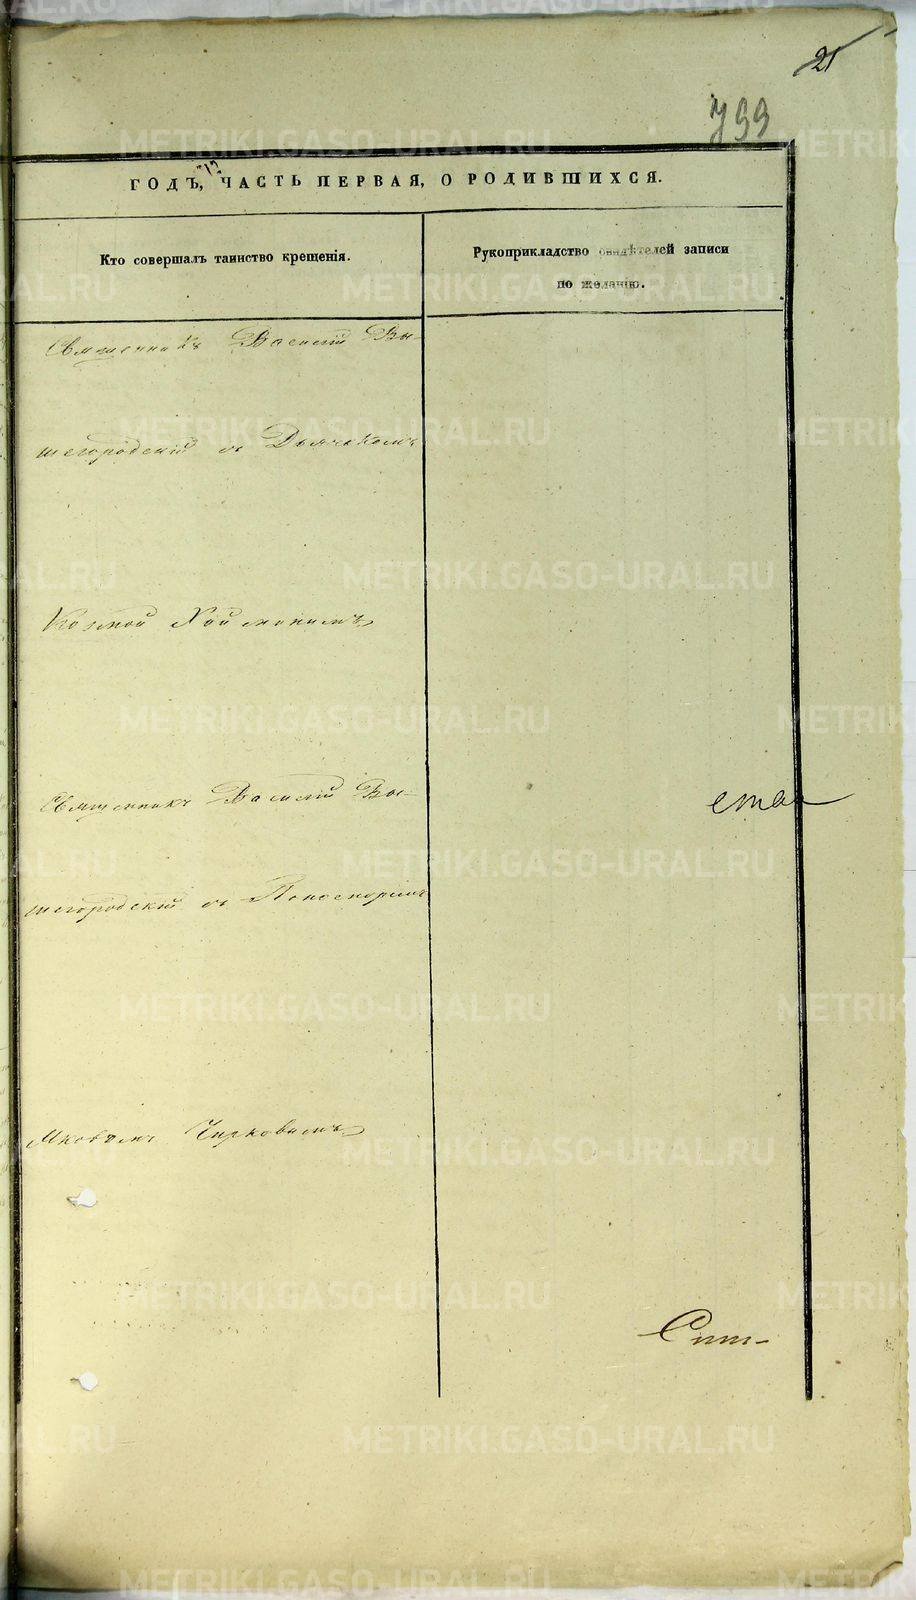 21
799
ГОДЪ, ЧАСТЬ ПЕРВАЯ, О РОДИВШИХСЯ.
Кто совершалъ таинство крещенія.
Рукоприкладство свидѣтелей записи
по желанію.
Священникъ Василій Вы-
шегородскій съ Дьячкомъ
Козмой
Священникъ Василій Вы-
шегородскій съ
Яковомъ Чирковымъ
METRIKI.GASO-URAL.RU